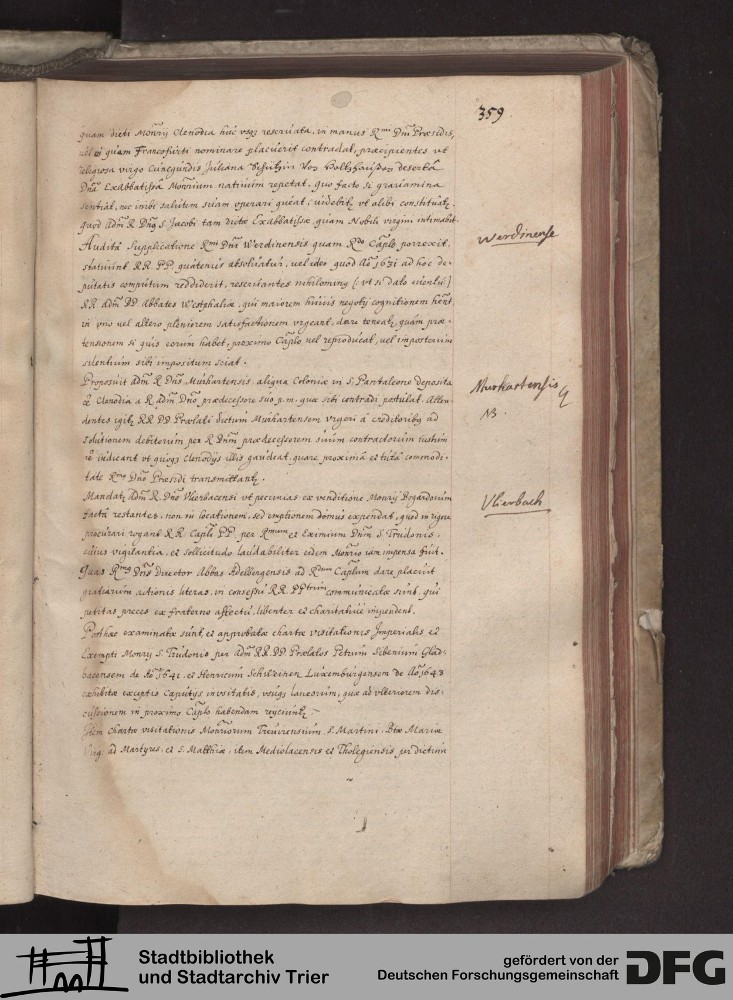 359
quam dicti Monrÿ Clenodia huc usq3 reseruata, in manus Rmi Dni Præsidis,
uel quem Francofurti nominare placuerit contradat, præcipientes vt
religiosa virgo Cunegundis Juliana Schützin Von Holtzhaußen desertâ
Dnâ ExAbbatissâ Monrium natiuum repetat, quo facto si grauamina
sentiat, nec inibi salutem suam operari queat, uidebitz vt alibi constituatz.
quod Adm R Dnus S. Jacobi tam dictæ Exabbatissæ, quam Nobili virgini intimabit.
Werdinense
Auditâ Supplicatione Rmi Dni Werdinensis quam Rdo Caplo porrexit,
statuunt RR PP. quatenus absoluatur, uel ideo quod Ao 1631 ad hoc de-
putatis computum reddiderit, reseruantes nihilominq (: vt si dato euentui :)
RR adm DD Abbates Westphaliæ, qui maiorem huius negotÿ cognitionem hent,
in uno uel altero pleniorem satisfactionem urgeant, dare teneatz, quam præ-
tensionem si quis eorum habet, proximo Caplo uel reproducat, uel imposterum
silentium sibi impositum sciat.
Murhartensis
NB.
Proposuit adm R Dnus Murhartensis aliqua Coloniæ in S. Pantaleone deposita
Clenodia a R adm Dno prædecessore suo p.m. quæ sibi contradi postulat. Atten-
dentes igitz RR DD Prælati dictum Murhartensem vrgeri à creditoribq ad
solutionem debitorum per R Dnum prædecessorem suum contractorum iustum
iudicant vt quoq3 Clenodÿs illis gaudeat, quare proximâ et tutâ commodi-
tate Rmo Dno Præsidi transmittantz.
Vlierbach
Mandatz adm R. Dno Vlierbacensi vt pecunias ex venditione Monrÿ Bogardorum
factâ restantes, non in locationem, sed emptionem domus expendat, quod in rigore
procurari rogant RR. Capli PP. per Rmum et Eximium Dnum S. Trudonis,
cuius vigilantia, et sollicitudo laudabiliter eidem Monrio iam impensa fuit.
Quas Rmus Dnus Director Abbas Adelbergensis ad Rdum Caplum dare placuit
gratiarum actionis literas, in consessu RR. PPtrum communicatæ sunt, qui
petitas preces ex fraterno affectu, libenter et charitatiuè impendent.
Posthac examinatæ sunt, et approbatæ chartæ visitationis Imperialis et
Exempti Monrÿ S. Trudonis per adm RR DD Prælatos Petrum Sibenium Glad-
bacensem de Ao 1641. et Henricum Luxemburgensem de Ao 1648
exhibitæ exceptis Caputÿs inusitatis, usuq3 laneorum, quæ ad vlteriorem dis-
cussionem in proximo Caplo habendam reÿciuntz.
Item Chartæ visitationis Monriorum Treuirensium, S. Martini, Btæ Mariæ
Virg. ad Martyres, et S. Matthiæ, item Mediolacensis et Tholegiensis per dictum
Stadtbibliothek
und Stadtarchiv Trier
gefördert von der
Deutschen Forschungsgemeinschaft
DFG